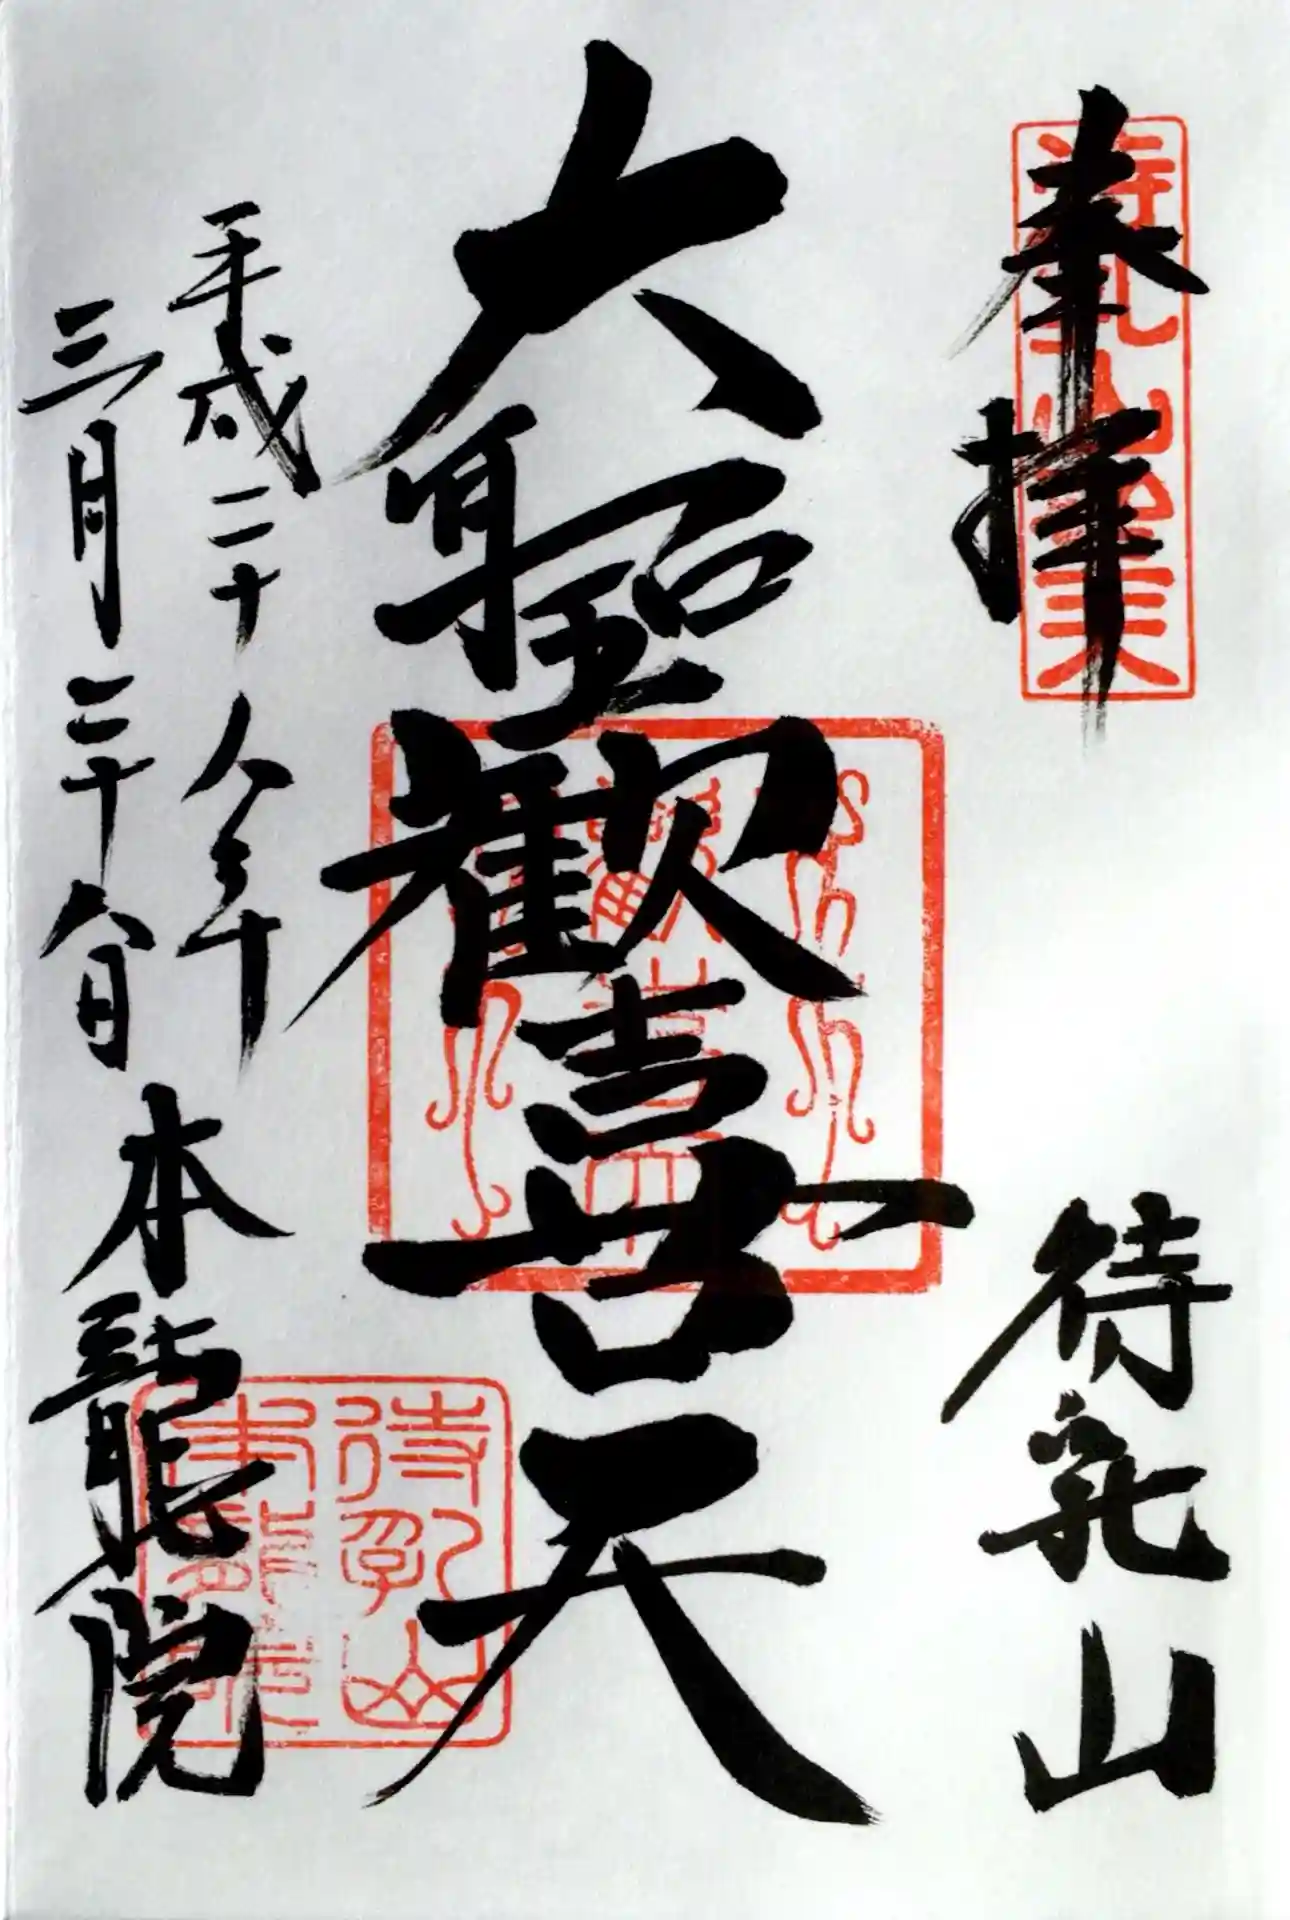 奉拝
待乳山
大聖歓喜天
平成二十八年
三月二十八日
本龍院
待乳山